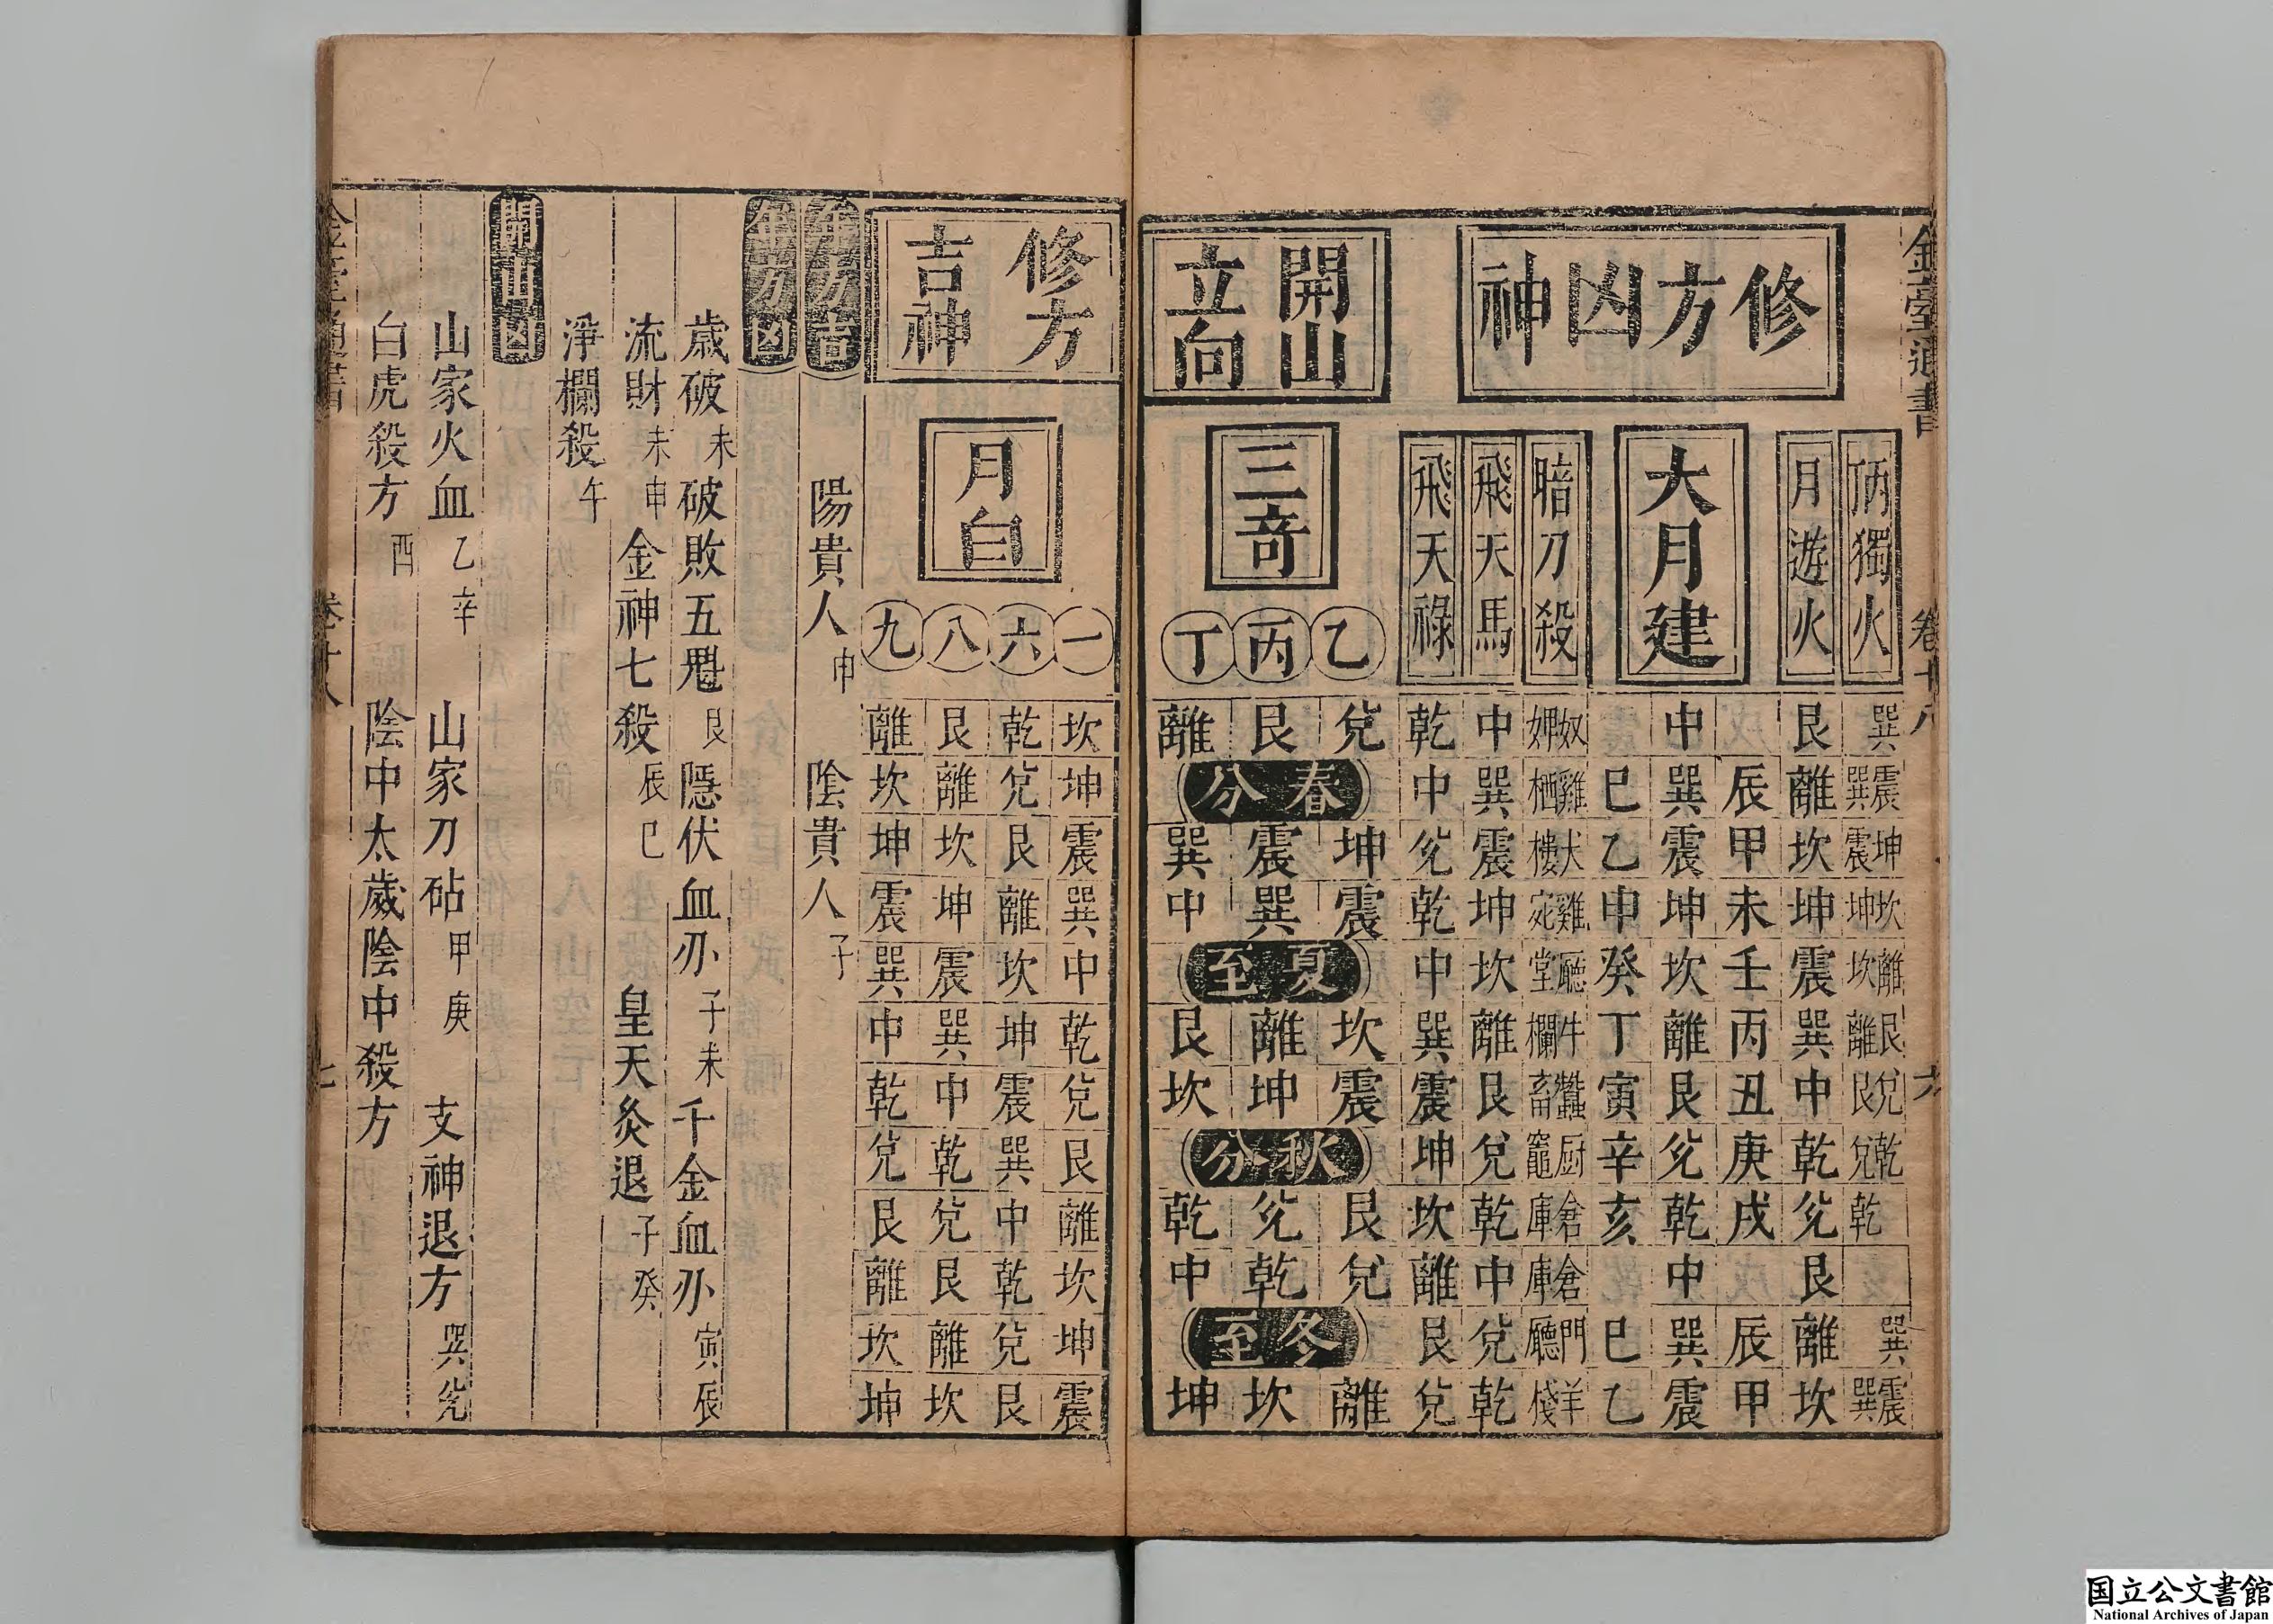 金臺通書 卷十八 六
修方凶神
開山立向
丙獨火 巽 震巽 坤震 坎坤 離坎 艮離 兌艮 乾兌 乾 巽 震巽
月遊火 艮 離 坎 坤 震 巽 中 乾 兌 艮 離 坎
大月建
辰 甲 未 壬 丙 丑 庚 戌 辰 甲
中 巽 震 坤 坎 離 艮 兌 乾 中 巽 震
巳 乙 申 癸 丁 寅 辛 亥 巳 乙
暗刀殺 奴婢 雞栖 犬樓 雞 廳堂 牛欄 蠶畜 厨竈 倉庫 倉庫 門廳 羊棧
飛天馬 中 巽 震 坤 坎 離 艮 兌 乾 中 兌 乾
飛天祿 乾 中 兌 乾 中 巽 震 坤 坎 離 艮 兌
三奇
乙 丙 丁
兌 艮 離
春分
坤 震 巽
震 巽 中
夏至
坎 離 艮
震 坤 坎
秋分
艮 兌 乾
兌 乾 中
冬至
離 坎 坤
修方吉神
月白
一 坎 坤 震 巽 中 乾 兌 艮 離 坎 坤 震
六 乾 兌 艮 離 坎 坤 震 巽 中 乾 兌 艮
八 艮 離 坎 坤 震 巽 中 乾 兌 艮 離 坎
九 離 坎 坤 震 巽 中 乾 兌 艮 離 坎 坤
年方吉
陽貴人 申 陰貴人 子
年方凶
歲破 未 破敗五鬼 艮 隱伏血刃 子未 千金血刃 寅辰
流財 未申 金神七殺 辰巳 皇天灸退 子癸
淨欄殺 午
開山凶
山家火血 乙辛 山家刀砧 甲庚 支神退方 巽兌
白虎殺方 酉 陰中太歲陰中殺方
金臺通書 卷十八 七
国立公文書館
National Archives of Japan